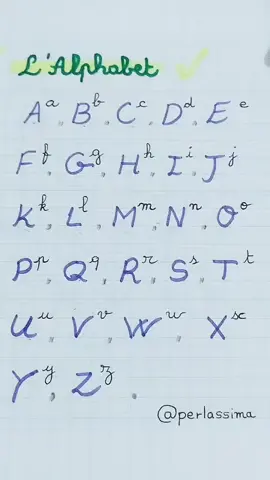 L'Alphabet
A a, B b, C c, D d, E e
F f, G g, H h, I i, J j
K k, L l, M m, N n, O o
P p, Q q, R r, S s, T t
U u, V v, W w, X x
Y y, Z z.
@perlassima